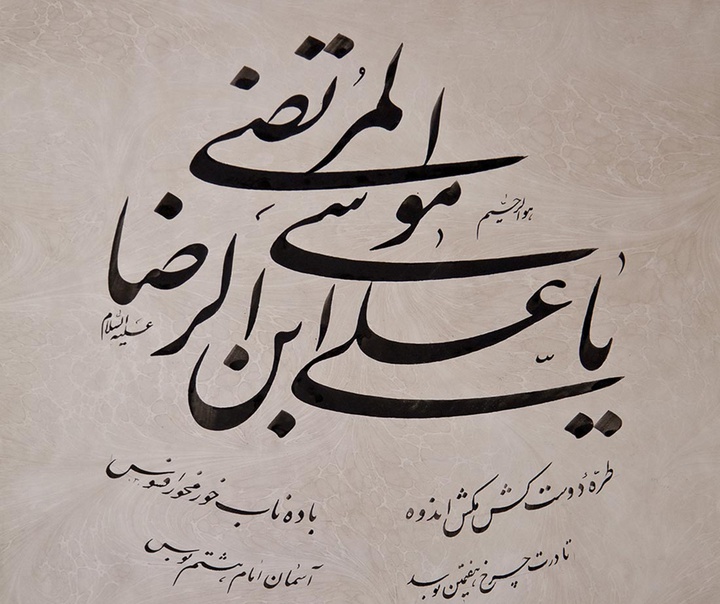 هوالرحیم
یا علی ابن موسی الرضا المرتضی
علیه السلام
طرّهٔ دوست کش مکش اندوه
باده ناب خور مخور افسوس
تا درت چرخ هفتمین بوسد
آستان امام هشتم بوس